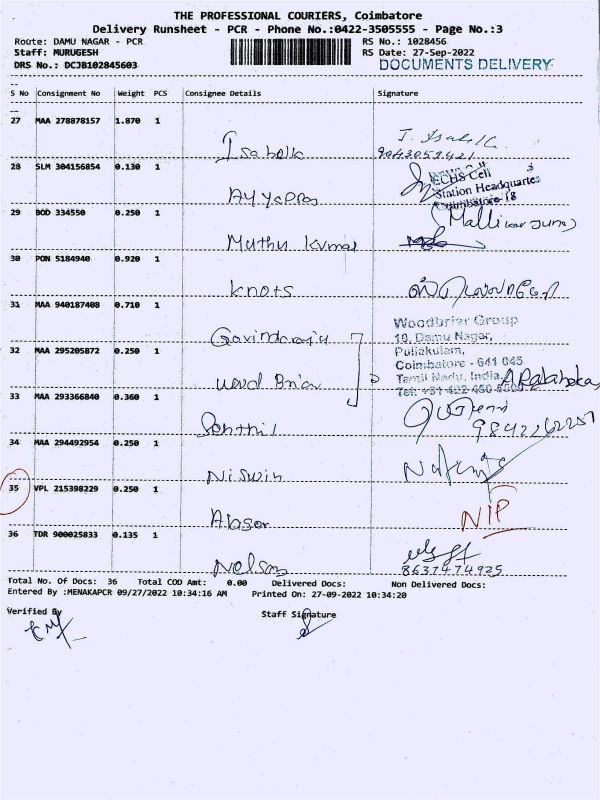 THE PROFESSIONAL COURIERS, Coimbatore
Delivery Runsheet - PCR - Phone No.:0422-3505555 - Page No.:3
Route: DAMU NAGAR - PCR RS No.: 1028456
Staff: MURUGESH RS Date: 27-Sep-2022
DRS No.: DCJB102845603 DOCUMENTS DELIVERY
S No Consignment No Weight PCS Consignee Details Signature
27 MAA 278878157 1.870 1
Isabella
9043059421
28 SLM 304156854 0.130 1
ECHS Cell
Station Headquarter
Coimbatore-18
Ayyappa
29 BOD 334550 0.250 1
Muthu Kumar
30 PON 5184940 0.920 1
Knots
31 MAA 940187408 0.710 1
Govindaraju
Woodbriar Group
10, Damu Nagar,
Puliakulam,
Coimbatore - 641 045
Tamil Nadu, India.
32 MAA 295205872 0.250 1
Wood Briar
33 MAA 293366840 0.360 1
Senthil
9842262257
34 MAA 294492954 0.250 1
Niswin
35 VPL 215398229 0.250 1
NIP
36 TDR 900025833 0.135 1
Nelson
8637474925
Total No. Of Docs: 36 Total COD Amt: 0.00 Delivered Docs: Non Delivered Docs:
Entered By :MENAKAPCR 09/27/2022 10:34:16 AM Printed On: 27-09-2022 10:34:20
Verified By Staff Signature